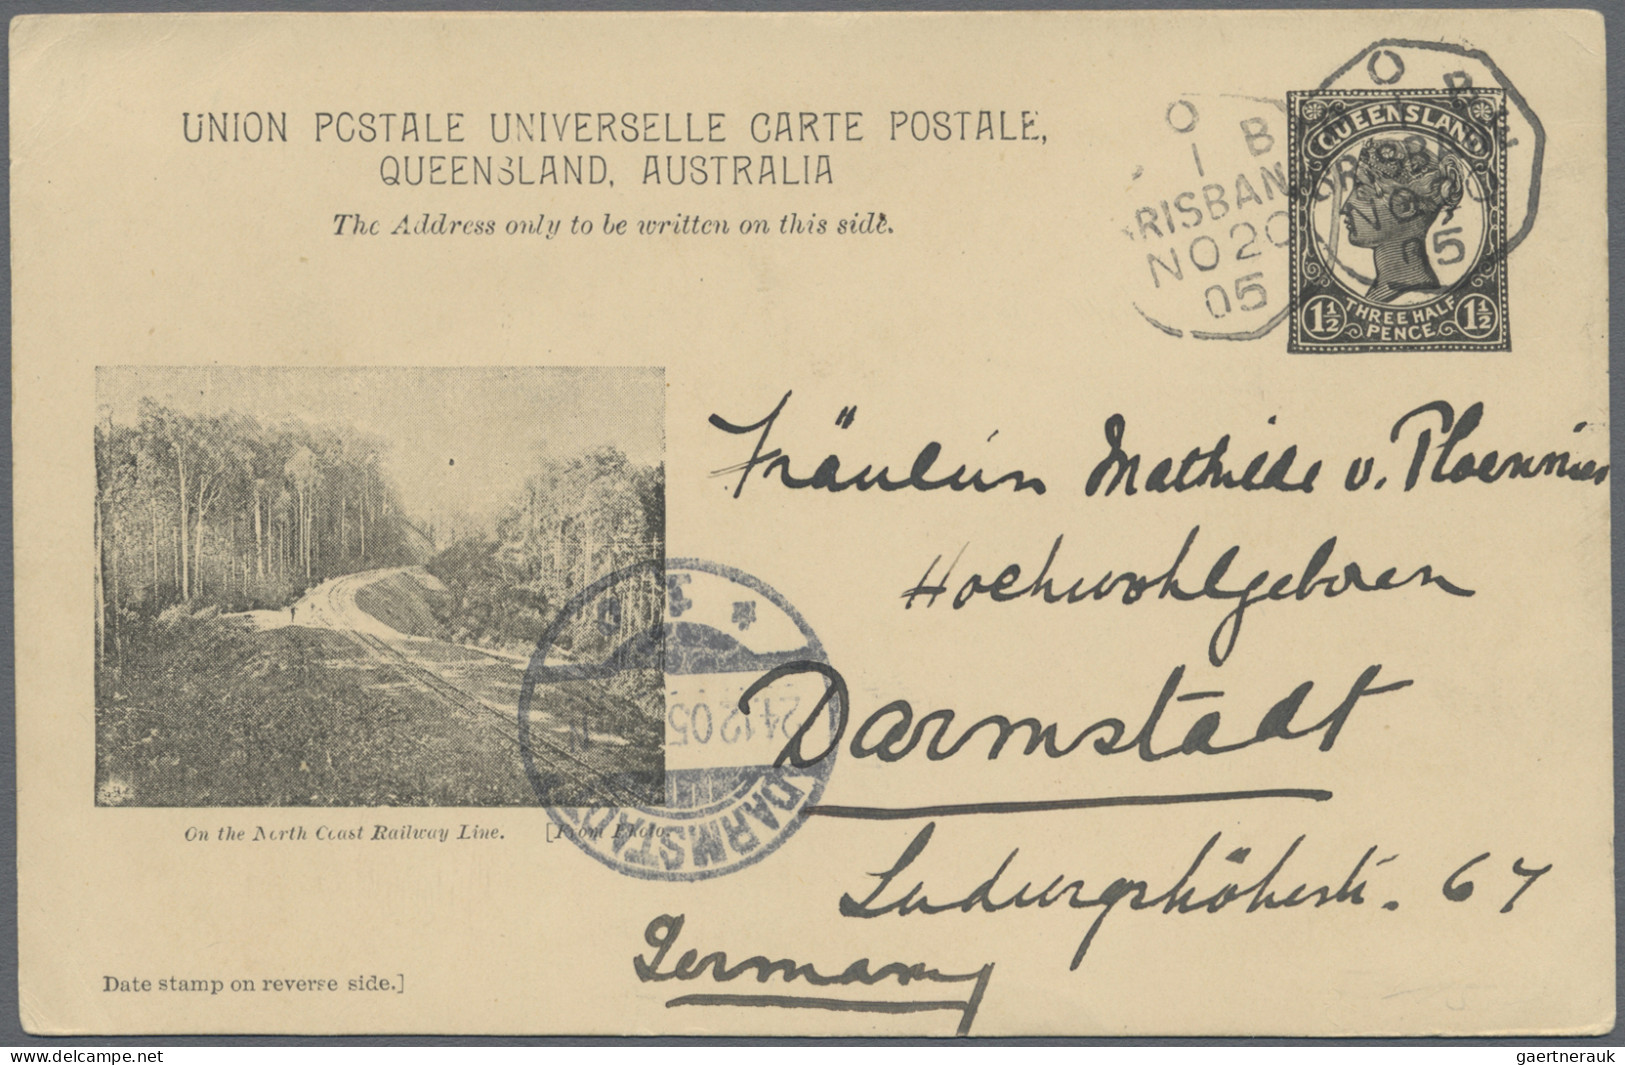 UNION POSTALE UNIVERSELLE CARTE POSTALE,
QUEENSLAND, AUSTRALIA
The Address only to be written on this side.
O
1 B
BRISBANE
NO 20
05
O
BRISBANE
NO 20
05
QUEENSLAND
1½ THREE HALF PENCE 1½
Fräulein Mathilde v. Ploennies
Hochwohlgeboren
Darmstadt
Ludwigshöhestr. 67
Germany
24.12.05
DARMSTADT
On the North Coast Railway Line. [From Photo.
Date stamp on reverse side.]
www.delcampe.net
gaertnerauk